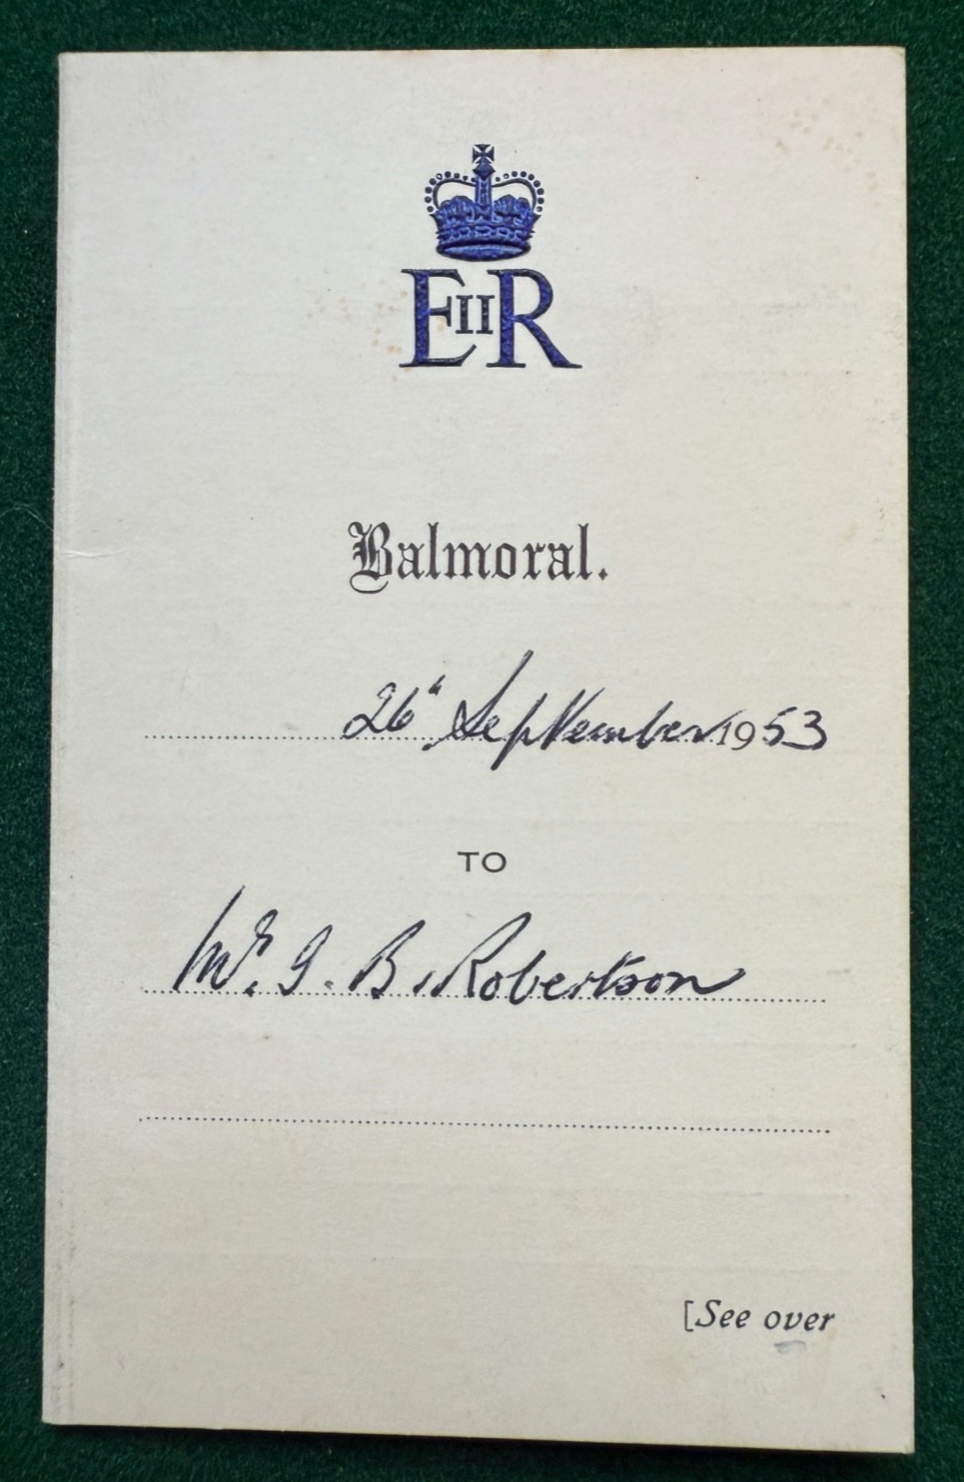 EIIR
Balmoral.
26th September 1953
TO
Mr. G. B. Robertson
[See over